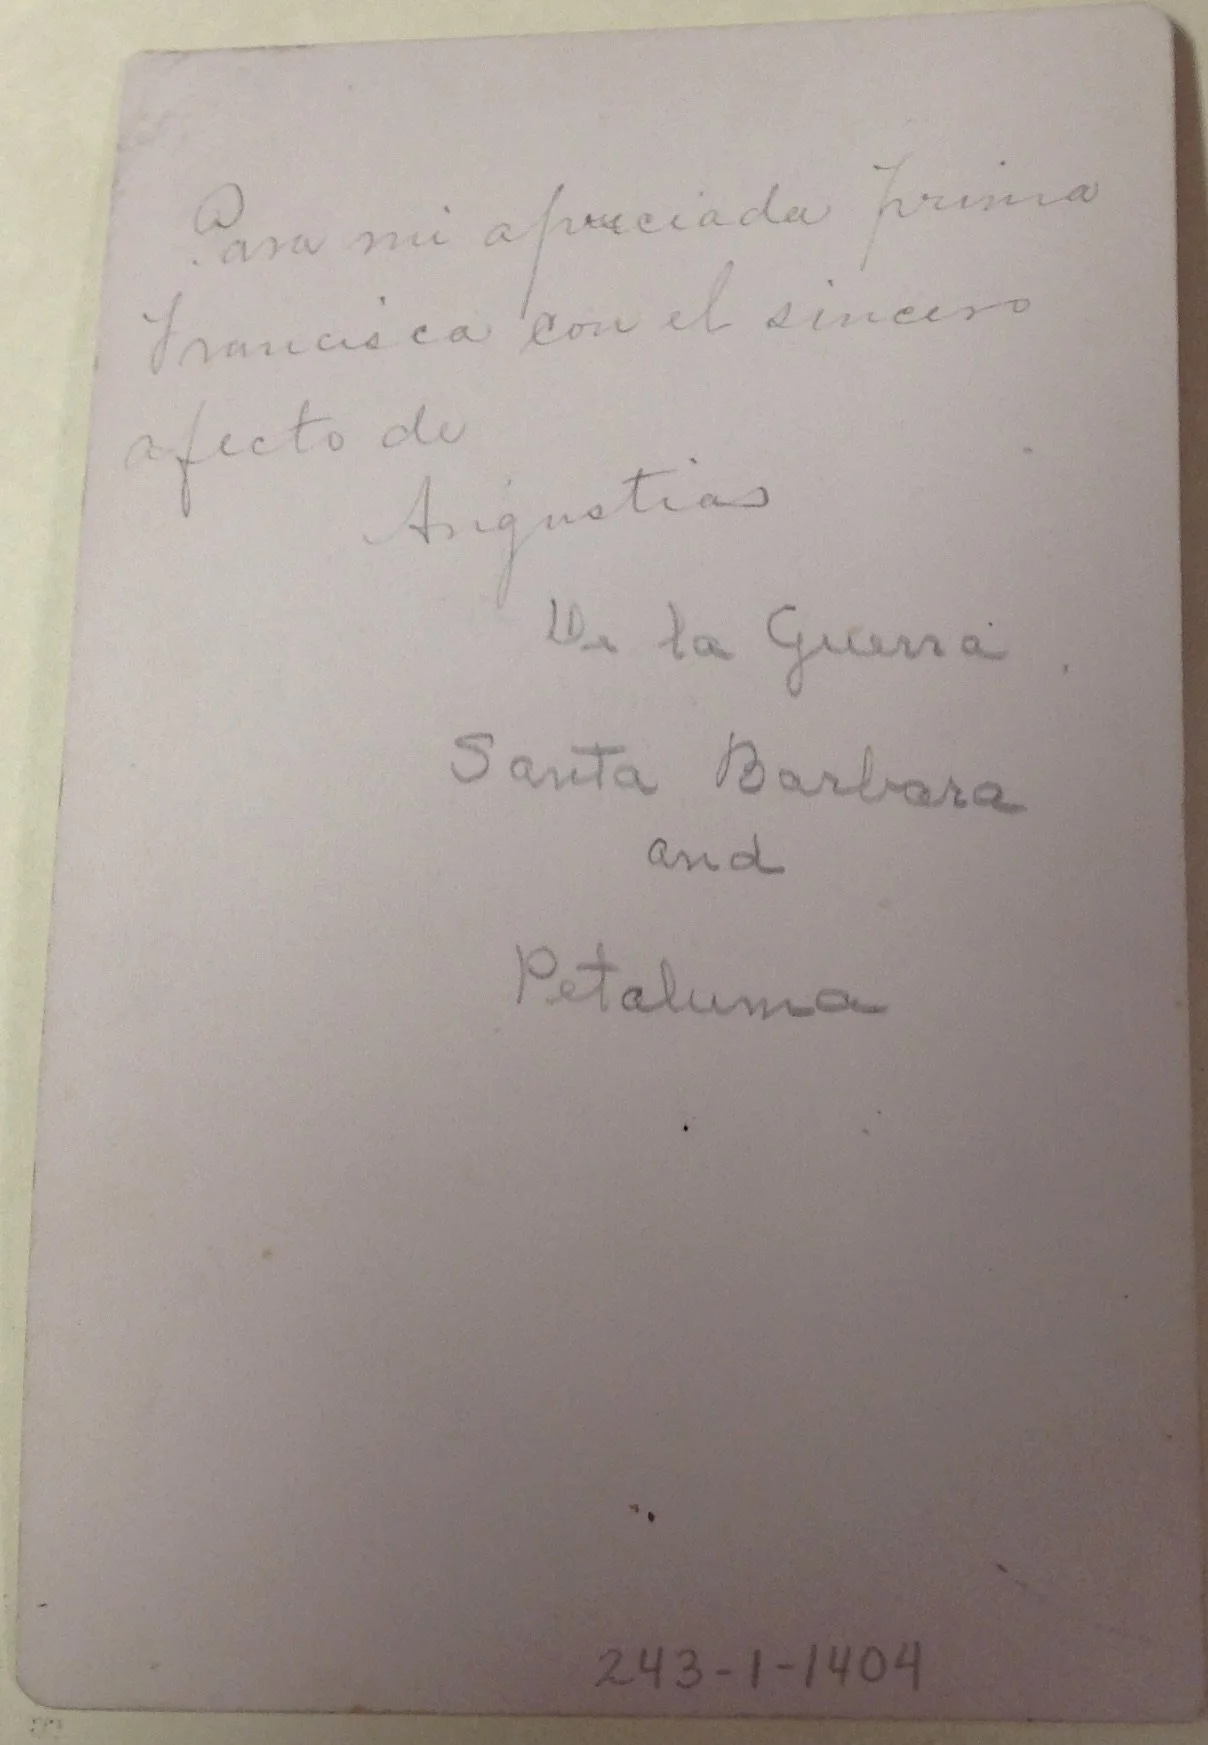 Para mi apreciada prima
Francisca con el sincero
afecto de
Angustias
De la Guerra
Santa Barbara
and
Petaluma
243-1-1404